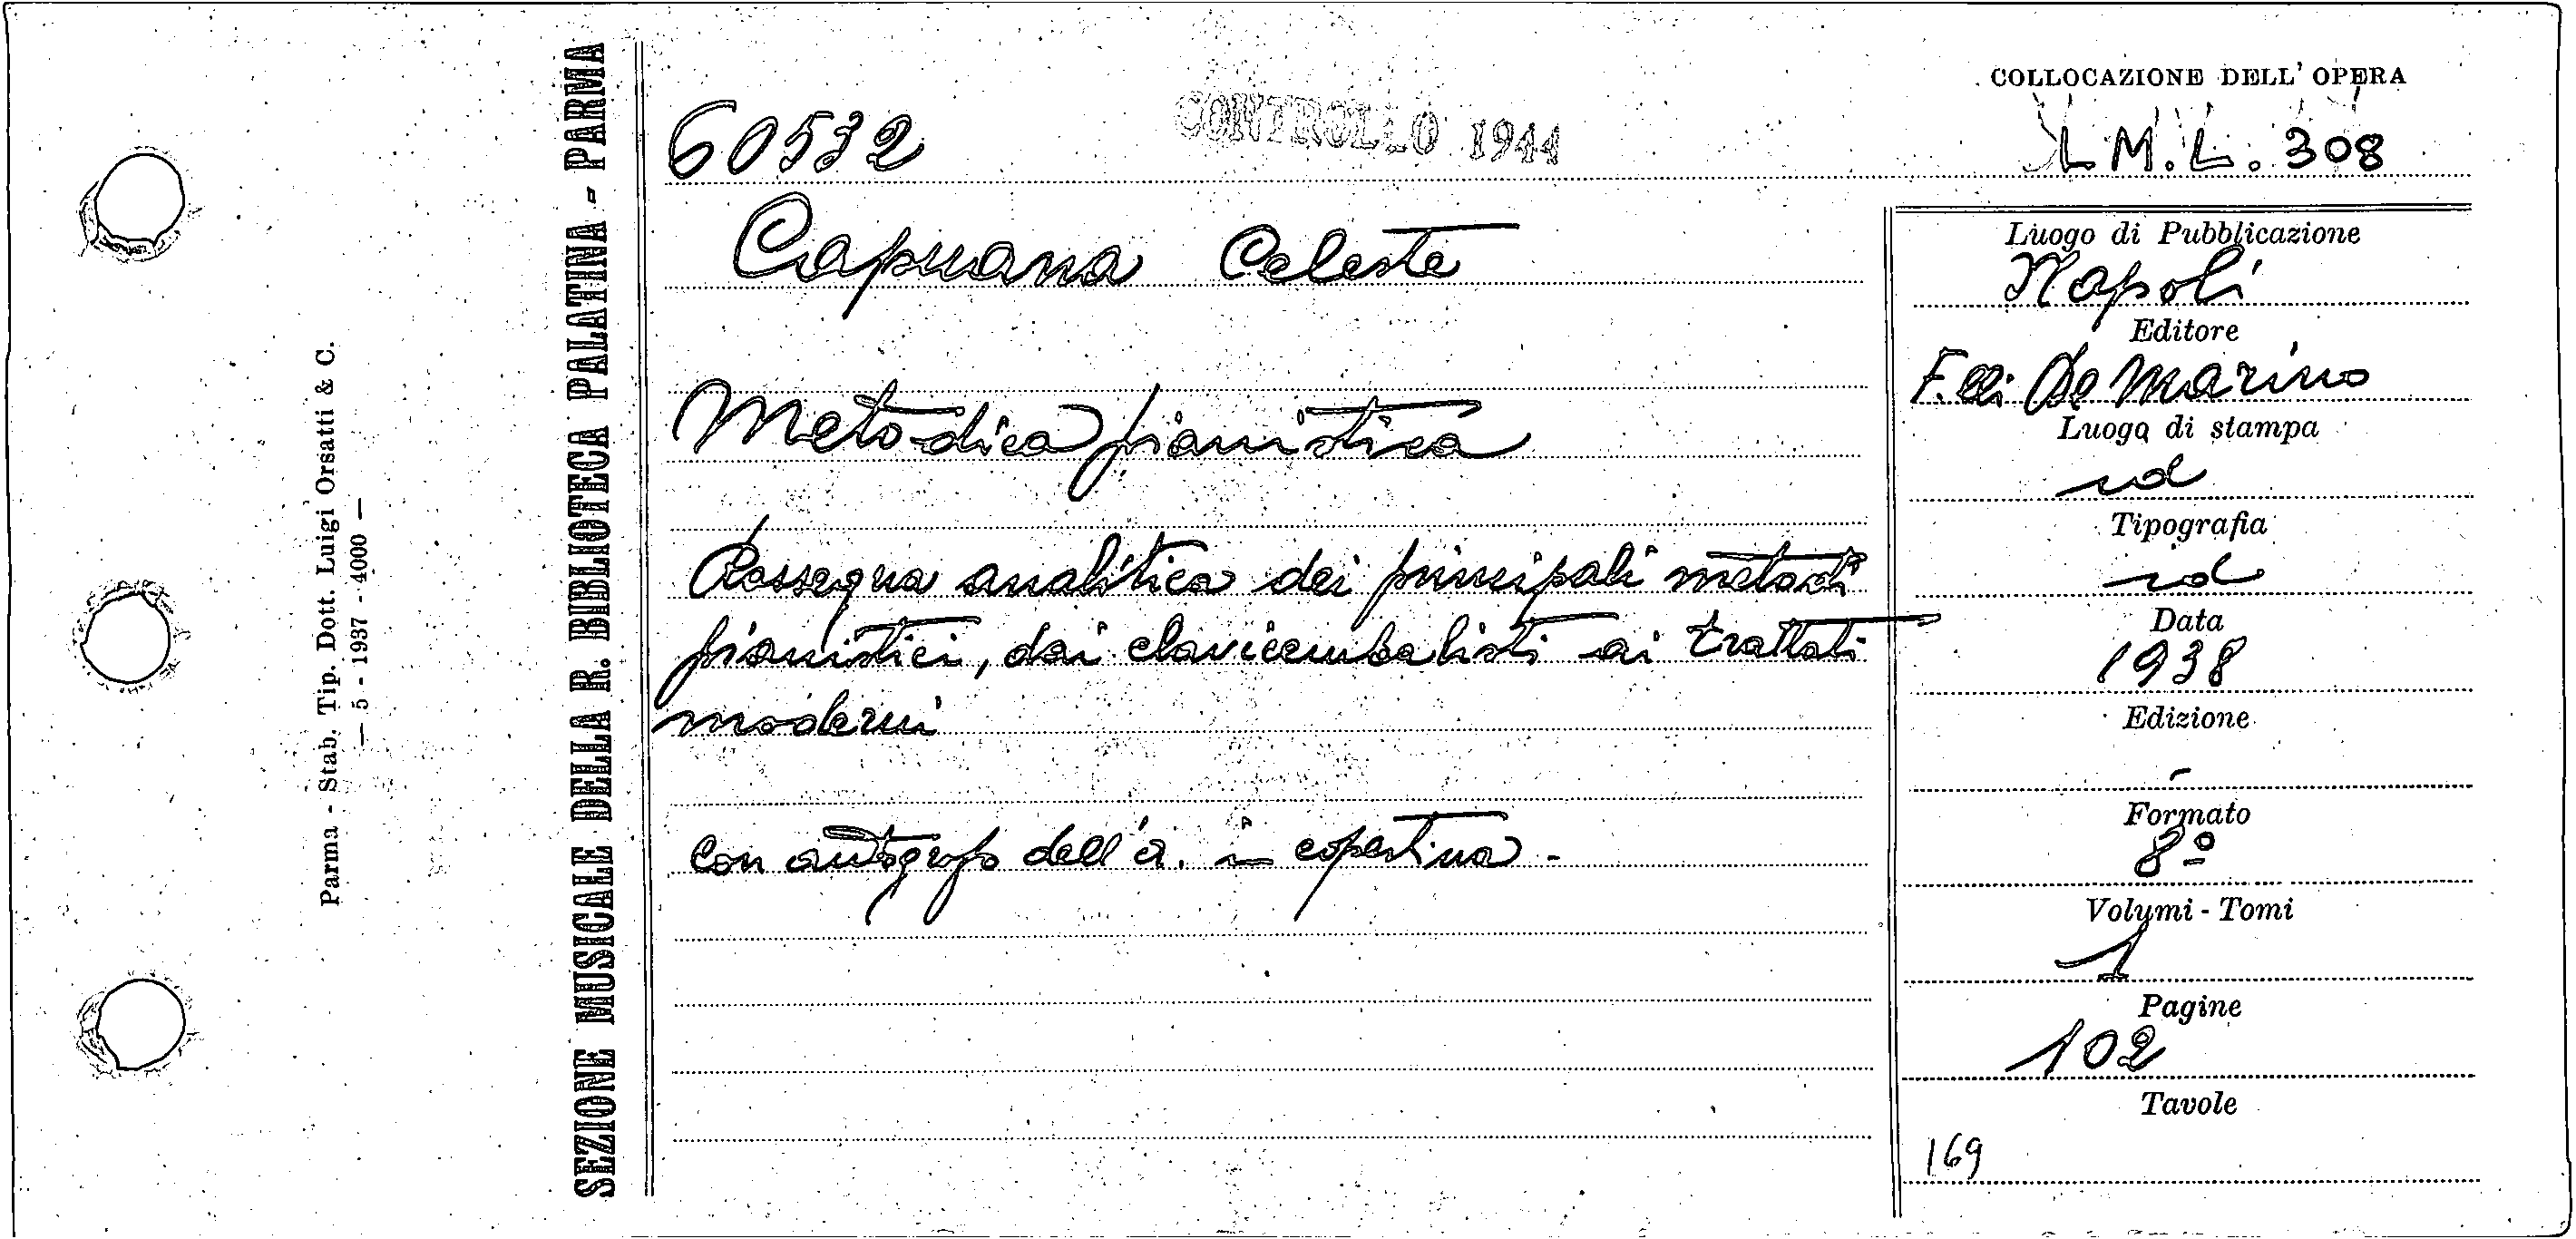 SEZIONE MUSICALE DELLA R. BIBLIOTECA PALATINA - PARMA
Parma - Stab. Tip. Dott. Luigi Orsatti & C.
— 5 - 1937 - 4000 —
60532
CONTROLLO 1944
Capuana Celeste
Metodica pianistica
Rassegna analitica dei principali metodi
pianistici, dai clavicembalisti ai trattati
moderni
con autografo dell'a. in copertina -
COLLOCAZIONE DELL' OPERA
L M. L. 308
Luogo di Pubblicazione
Napoli
Editore
F.lli De Marino
Luogo di stampa
id
Tipografia
id
Data
1938
Edizione
-
Formato
8º
Volumi - Tomi
1
Pagine
102
Tavole
169